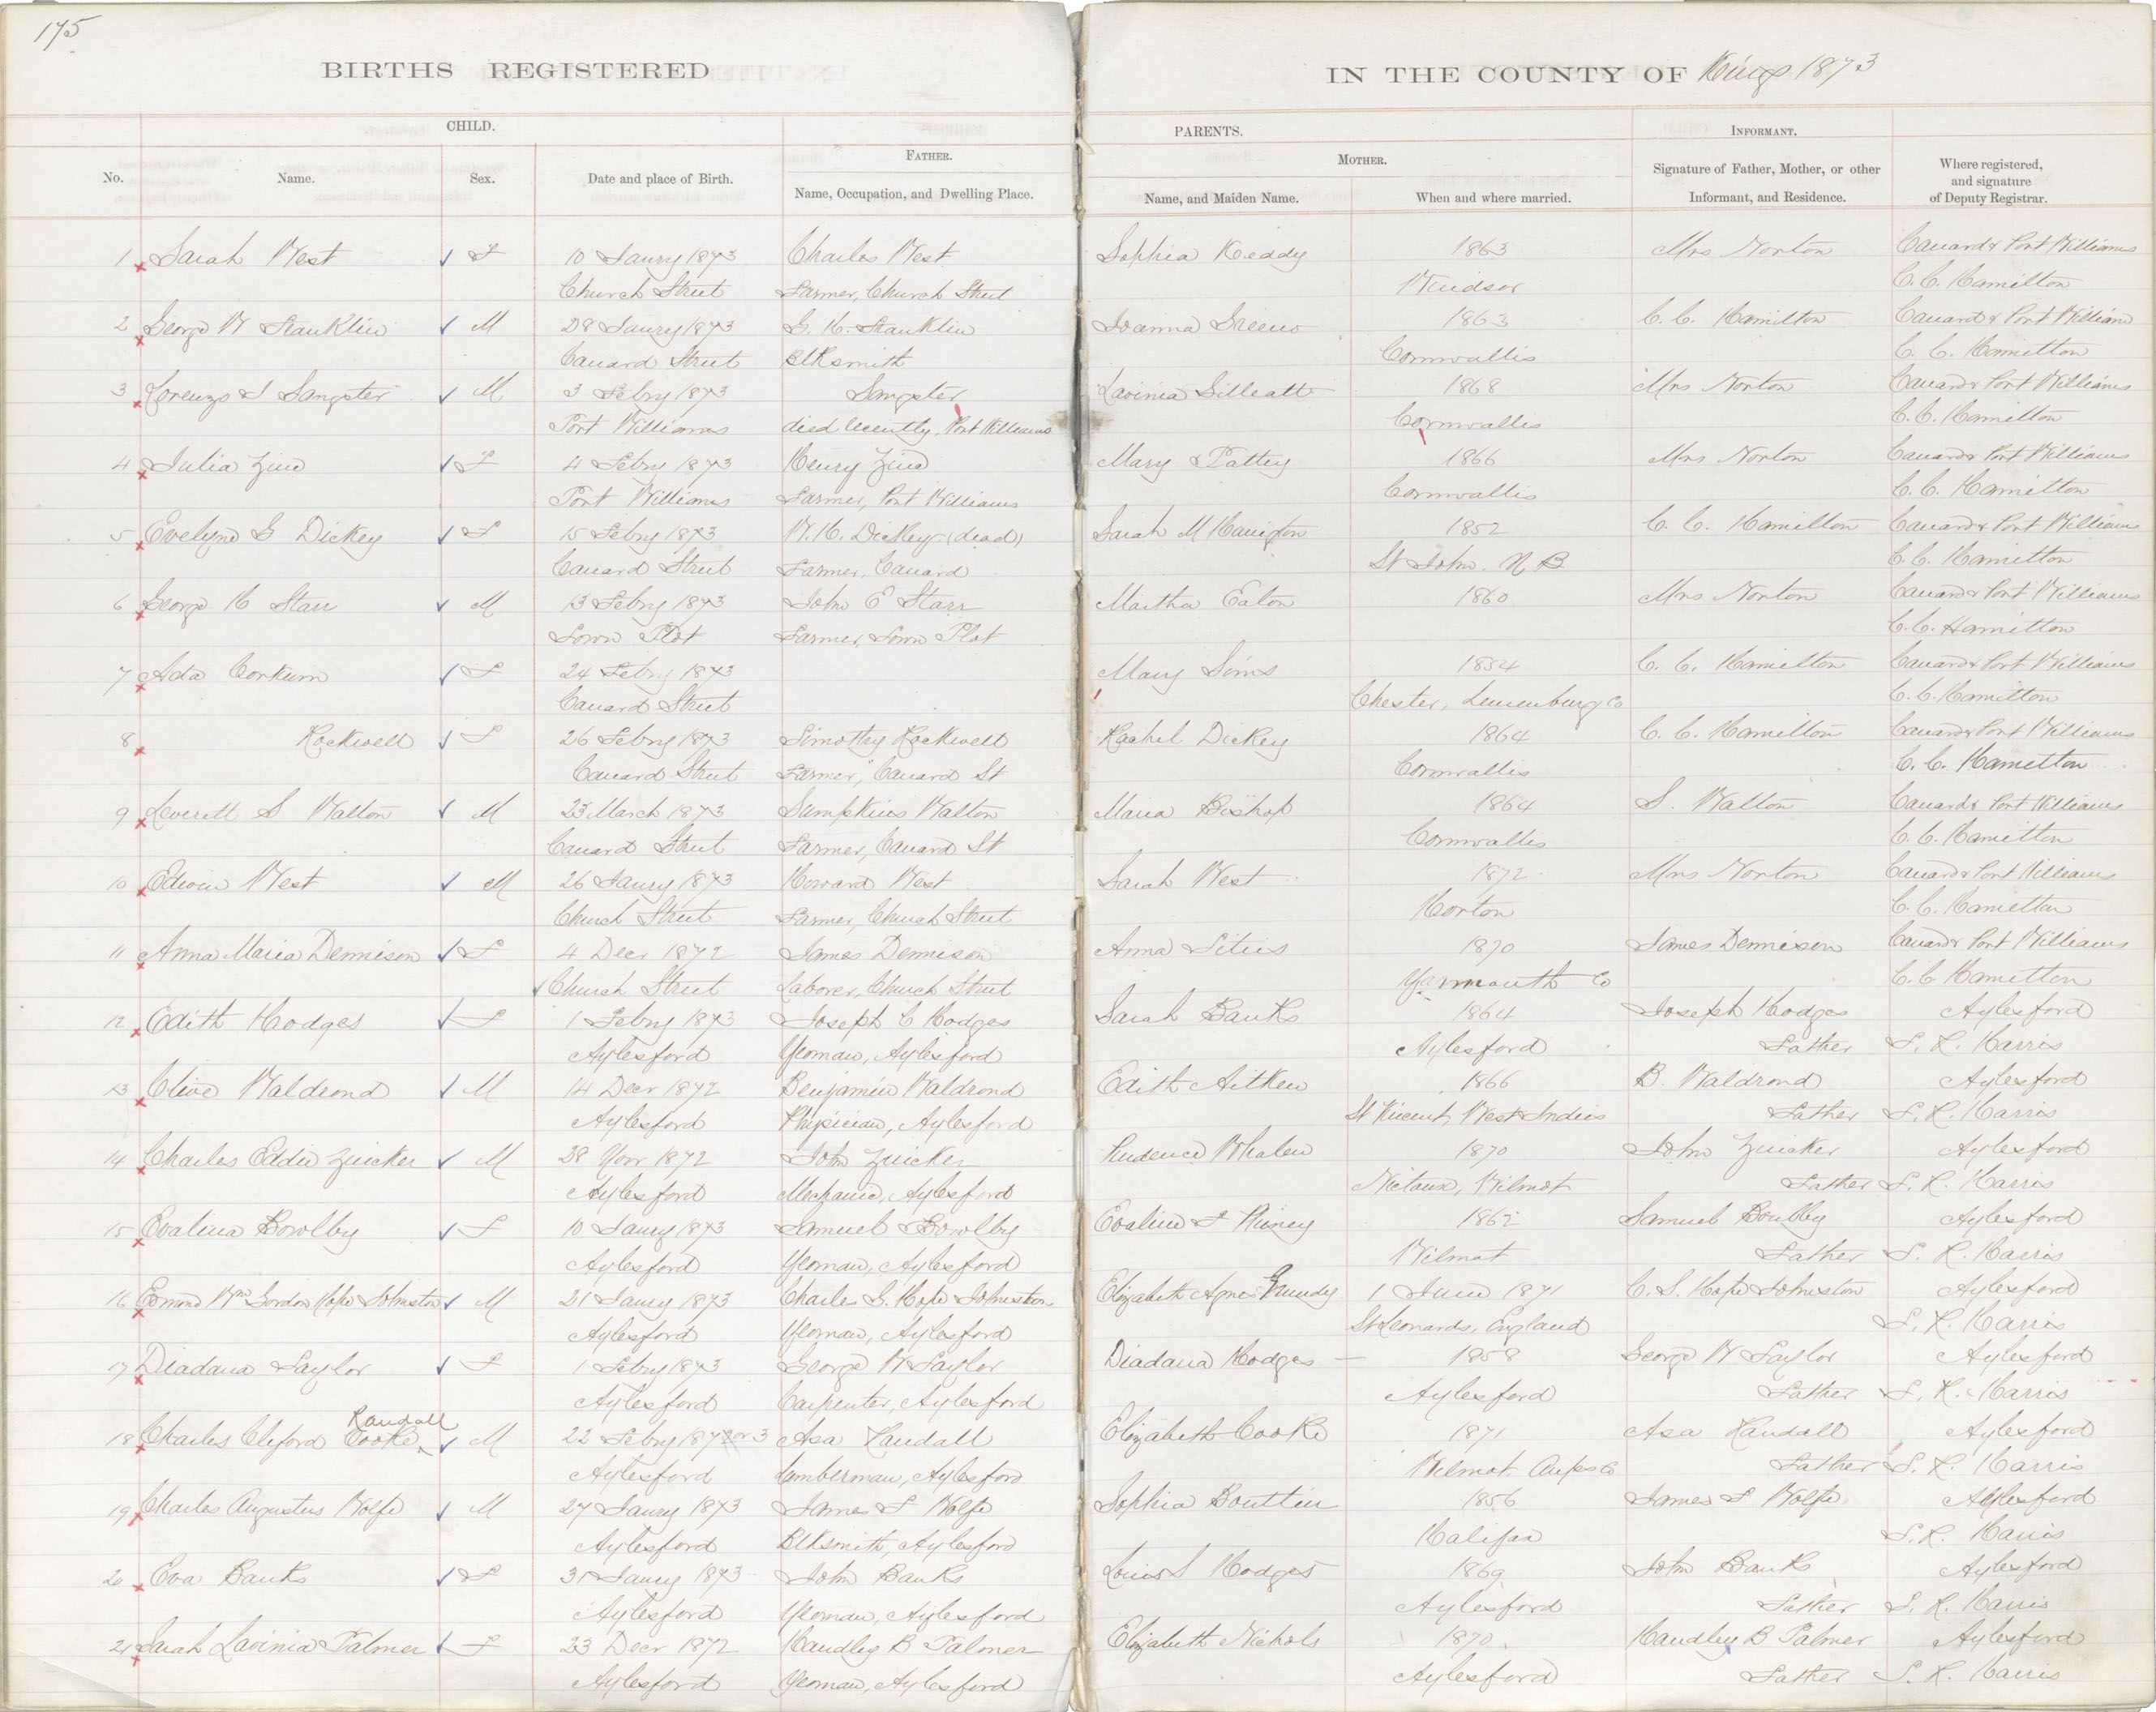 175
BIRTHS REGISTERED IN THE COUNTY OF Kings 1873
CHILD. PARENTS. INFORMANT.
FATHER. MOTHER.
No. Name. Sex. Date and place of Birth. Name, Occupation, and Dwelling Place. Name, and Maiden Name. When and where married. Signature of Father, Mother, or other Informant, and Residence. Where registered, and signature of Deputy Registrar.
1 Sarah West F 10 Jany 1873 Charles West Sophia Keddy 1863 Mrs Norton Canard & Port Williams
Church Street Farmer, Church Street Windsor C. C. Hamilton
2 George W Franklin M 28 Jany 1873 G. H. Franklin Joanna Greeno 1863 C. C. Hamilton Canard & Port Williams
Canard Street Blksmith Cornwallis C. C. Hamilton
3 Lorenzo S Sangster M 3 Febry 1873 Sangster Lavinia Gilleatt 1868 Mrs Norton Canard & Port Williams
Port Williams died recently, Port Williams Cornwallis C. C. Hamilton
4 Julia Zine F 4 Febry 1873 Henry Zine Mary Pattey 1866 Mrs Norton Canard & Port Williams
Port Williams Farmer, Port Williams Cornwallis C. C. Hamilton
5 Evelyne G Dickey F 15 Febry 1873 W. H. Dickey (dead) Sarah M 1852 C. C. Hamilton Canard & Port Williams
Canard Street Farmer, Canard St John. N B C. C. Hamilton
6 George H Starr M 13 Febry 1873 John E Starr Martha Eaton 1860 Mrs Norton Canard & Port Williams
Town Plot Farmer, Town Plot C. C. Hamilton
7 Ada Corkum F 24 Febry 1873 Mary Sims 1854 C. C. Hamilton Canard & Port Williams
Canard Street Chester, Lunenburg Co C. C. Hamilton
8 Rockwell F 26 Febry 1873 Timothy Rockwell Rachel Dickey 1864 C. C. Hamilton Canard & Port Williams
Canard Street Farmer, Canard St Cornwallis C. C. Hamilton
9 Leverett S Walton M 23 March 1873 Walton Maria Bishop 1864 S. Walton Canard & Port Williams
Canard Street Farmer, Canard St Cornwallis C. C. Hamilton
10 Edwin West M 26 Jany 1873 Howard West Sarah West 1872 Mrs Norton Canard & Port Williams
Church Street Farmer, Church Street Horton C. C. Hamilton
11 Anna Maria Dennison F 4 Decr 1872 James Dennison Anna Titus 1870 James Dennison Canard & Port Williams
Church Street Laborer, Church Street Yarmouth Co C. C. Hamilton
12 Edith Hodges F 1 Febry 1873 Joseph C Hodges Sarah Banks 1864 Joseph Hodges Aylesford
Aylesford Yeoman, Aylesford Aylesford Father S. R. Harris
13 Clive Waldrond M 14 Decr 1872 Benjamin Waldrond Edith Aitken 1866 B. Waldrond Aylesford
Aylesford Physician, Aylesford St Vincent, West Indies Father S. R. Harris
14 Charles Eddie Zwicker M 28 Novr 1872 John Zwicker Prudence Whalen 1870 John Zwicker Aylesford
Aylesford Mechanic, Aylesford Nictaux, Wilmot Father S. R. Harris
15 Evalina Bowlby F 10 Jany 1873 Samuel Bowlby Evaline F 1862 Samuel Bowlby Aylesford
Aylesford Yeoman, Aylesford Wilmot Father S. R. Harris
16 Edmond Wm Gordon Hope Johnston M 21 Jany 1873 Charles S. Hope Johnston Elizabeth Agnes Grundy 1 June 1871 C. S. Hope Johnston Aylesford
Aylesford Yeoman, Aylesford St Leonards, England S. R. Harris
17 Diadana Saylor F 1 Febry 1873 George W Saylor Diadana Hodges 1858 George W Saylor Aylesford
Aylesford Carpenter, Aylesford Aylesford Father S. R. Harris
Randall
18 Charles Cliford Cooke M 22 Febry 1872 or 3 Asa Randall Elizabeth Cooke 1871 Asa Randall Aylesford
Aylesford Lumberman, Aylesford Wilmot Co Father S. R. Harris
19 Charles Augustus Wolfe M 27 Jany 1873 James S Wolfe Sophia Bouttin 1856 James S Wolfe Aylesford
Aylesford Blksmith, Aylesford Halifax S. R. Harris
20 Eva Banks F 31 Jany 1873 John Banks Hodges 1869 John Banks Aylesford
Aylesford Yeoman, Aylesford Aylesford Father S. R. Harris
21 Sarah Lavinia Palmer F 23 Decr 1872 Handley B Palmer Elizabeth Nichols 1870 Handley B Palmer Aylesford
Aylesford Yeoman, Aylesford Aylesford Father S. R. Harris